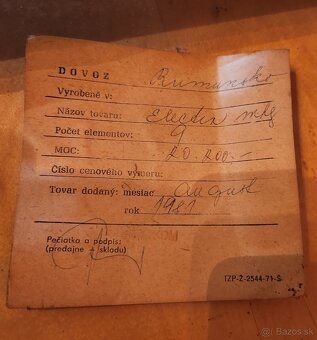 DOVOZ Rumunsko
Vyrobené v:
Názov tovaru:
Počet elementov: 9
MOC: 20.200.-
Číslo cenového výmeru:
Tovar dodaný: mesiac August
rok 1981
Pečiatka a podpis:
(predajne – skladu)
TZP-Ž-2544-71-S
© Bazos.sk